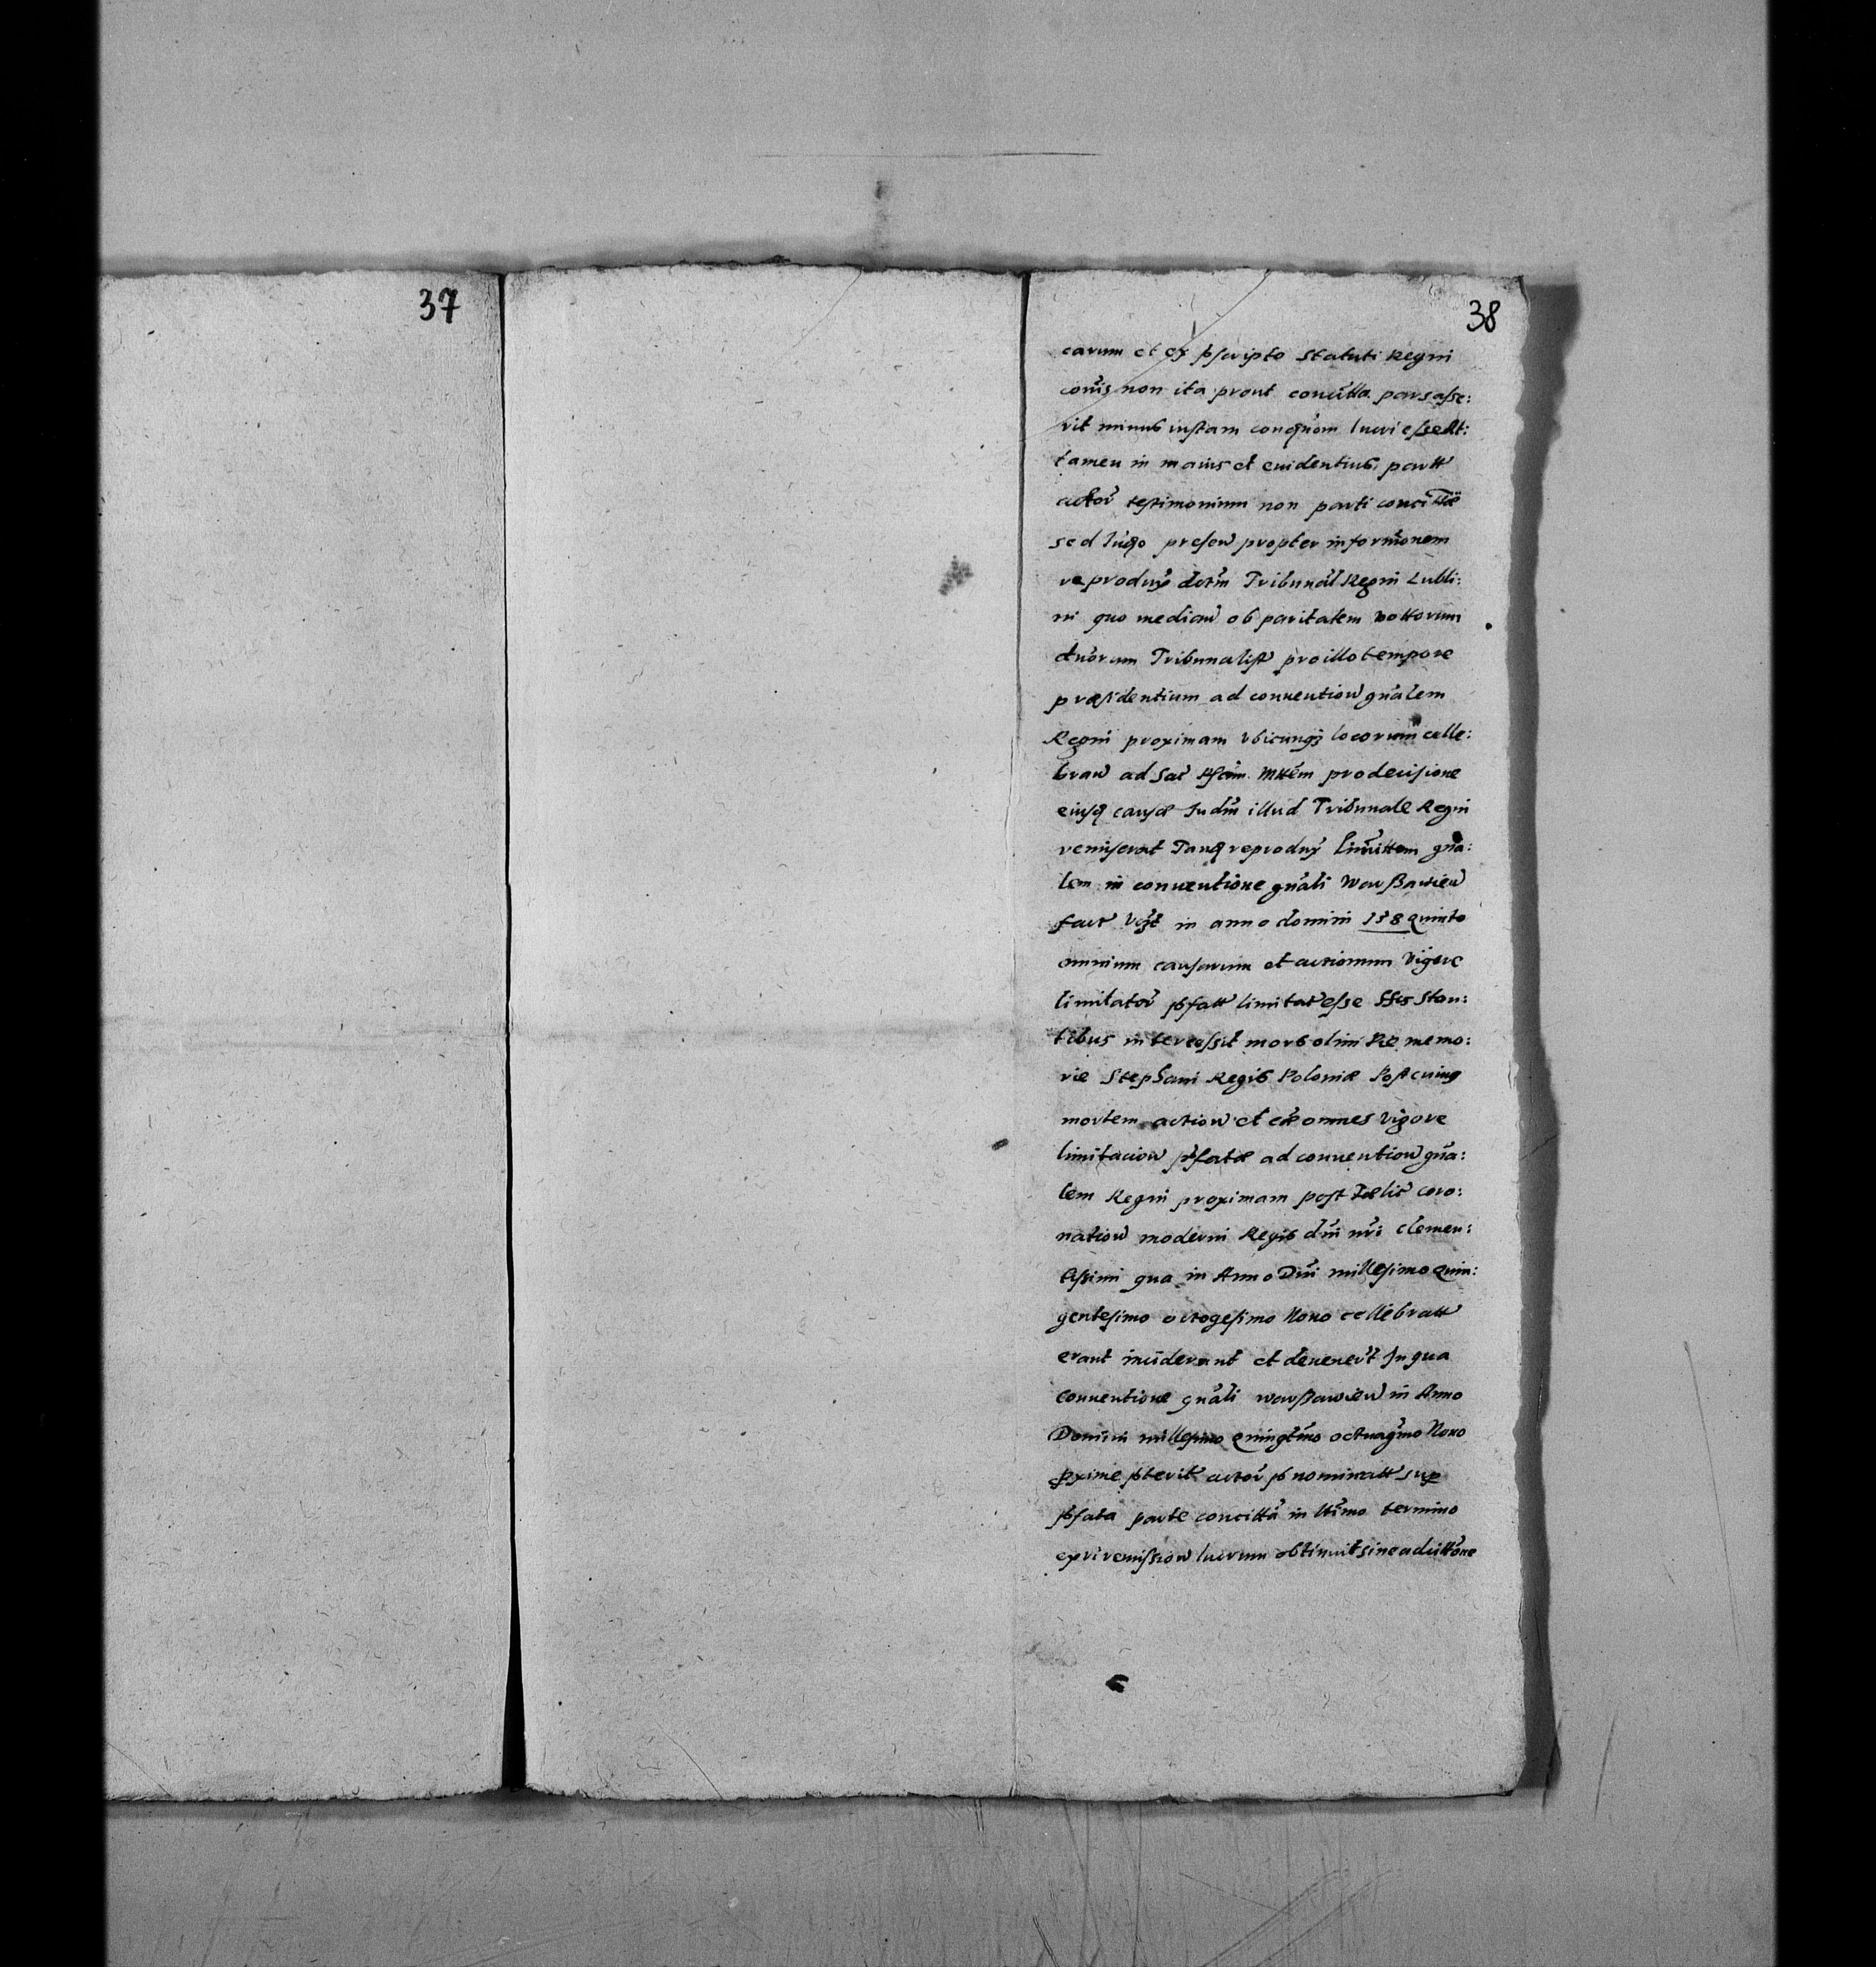 37
38
carum et ex pscripto statuti Regni
cons non ita prout concitta pars asse:
rit minus iustam lucri esse
tamen in maius et euidentius partt
actor testimonium non parti concitte
sed Iudo presen propter informonem
reprodux dcrtm Tribunal Regni Lubli:
ni quo median ob paritatem vottorum
duorum Tribunalist pro illo tempore
præsidentium ad conuention gnalem
Regni proximam vbicunq locorum celle:
bran ad Sac pro decisione
eiusq causæ Iudm illud Tribunale Regni
remiserat Tanq reprodux limittem gna:
lem in conuentione gnali Warßawien
fact vigt in anno domini 158 quinto
omnium causarum et actionum vigore
limitator pfatt limitat esse stan:
tibus intercessit mors olim Piæ memo:
rie Stephani Regis Poloniæ Post cuius
mortem action et cæ omnes vigore
limitacion pfatæ ad conuention gna:
lem Regni proximam post Fælic coro:
nation moderni Regis dni nri clemen:
tissimi qua in Anno Dni millesimo Quin:
gentesimo octogesimo Nono cellebratt
erant inciderunt et deuenert In qua
conuentione gnali warßawien in Anno
Domini millesimo Quingtmo octuagmo Nono
pxime pterit actor pnominatt sup
pfata parte concitta in termino
ex remission lucrum obtinuit sine adcittone